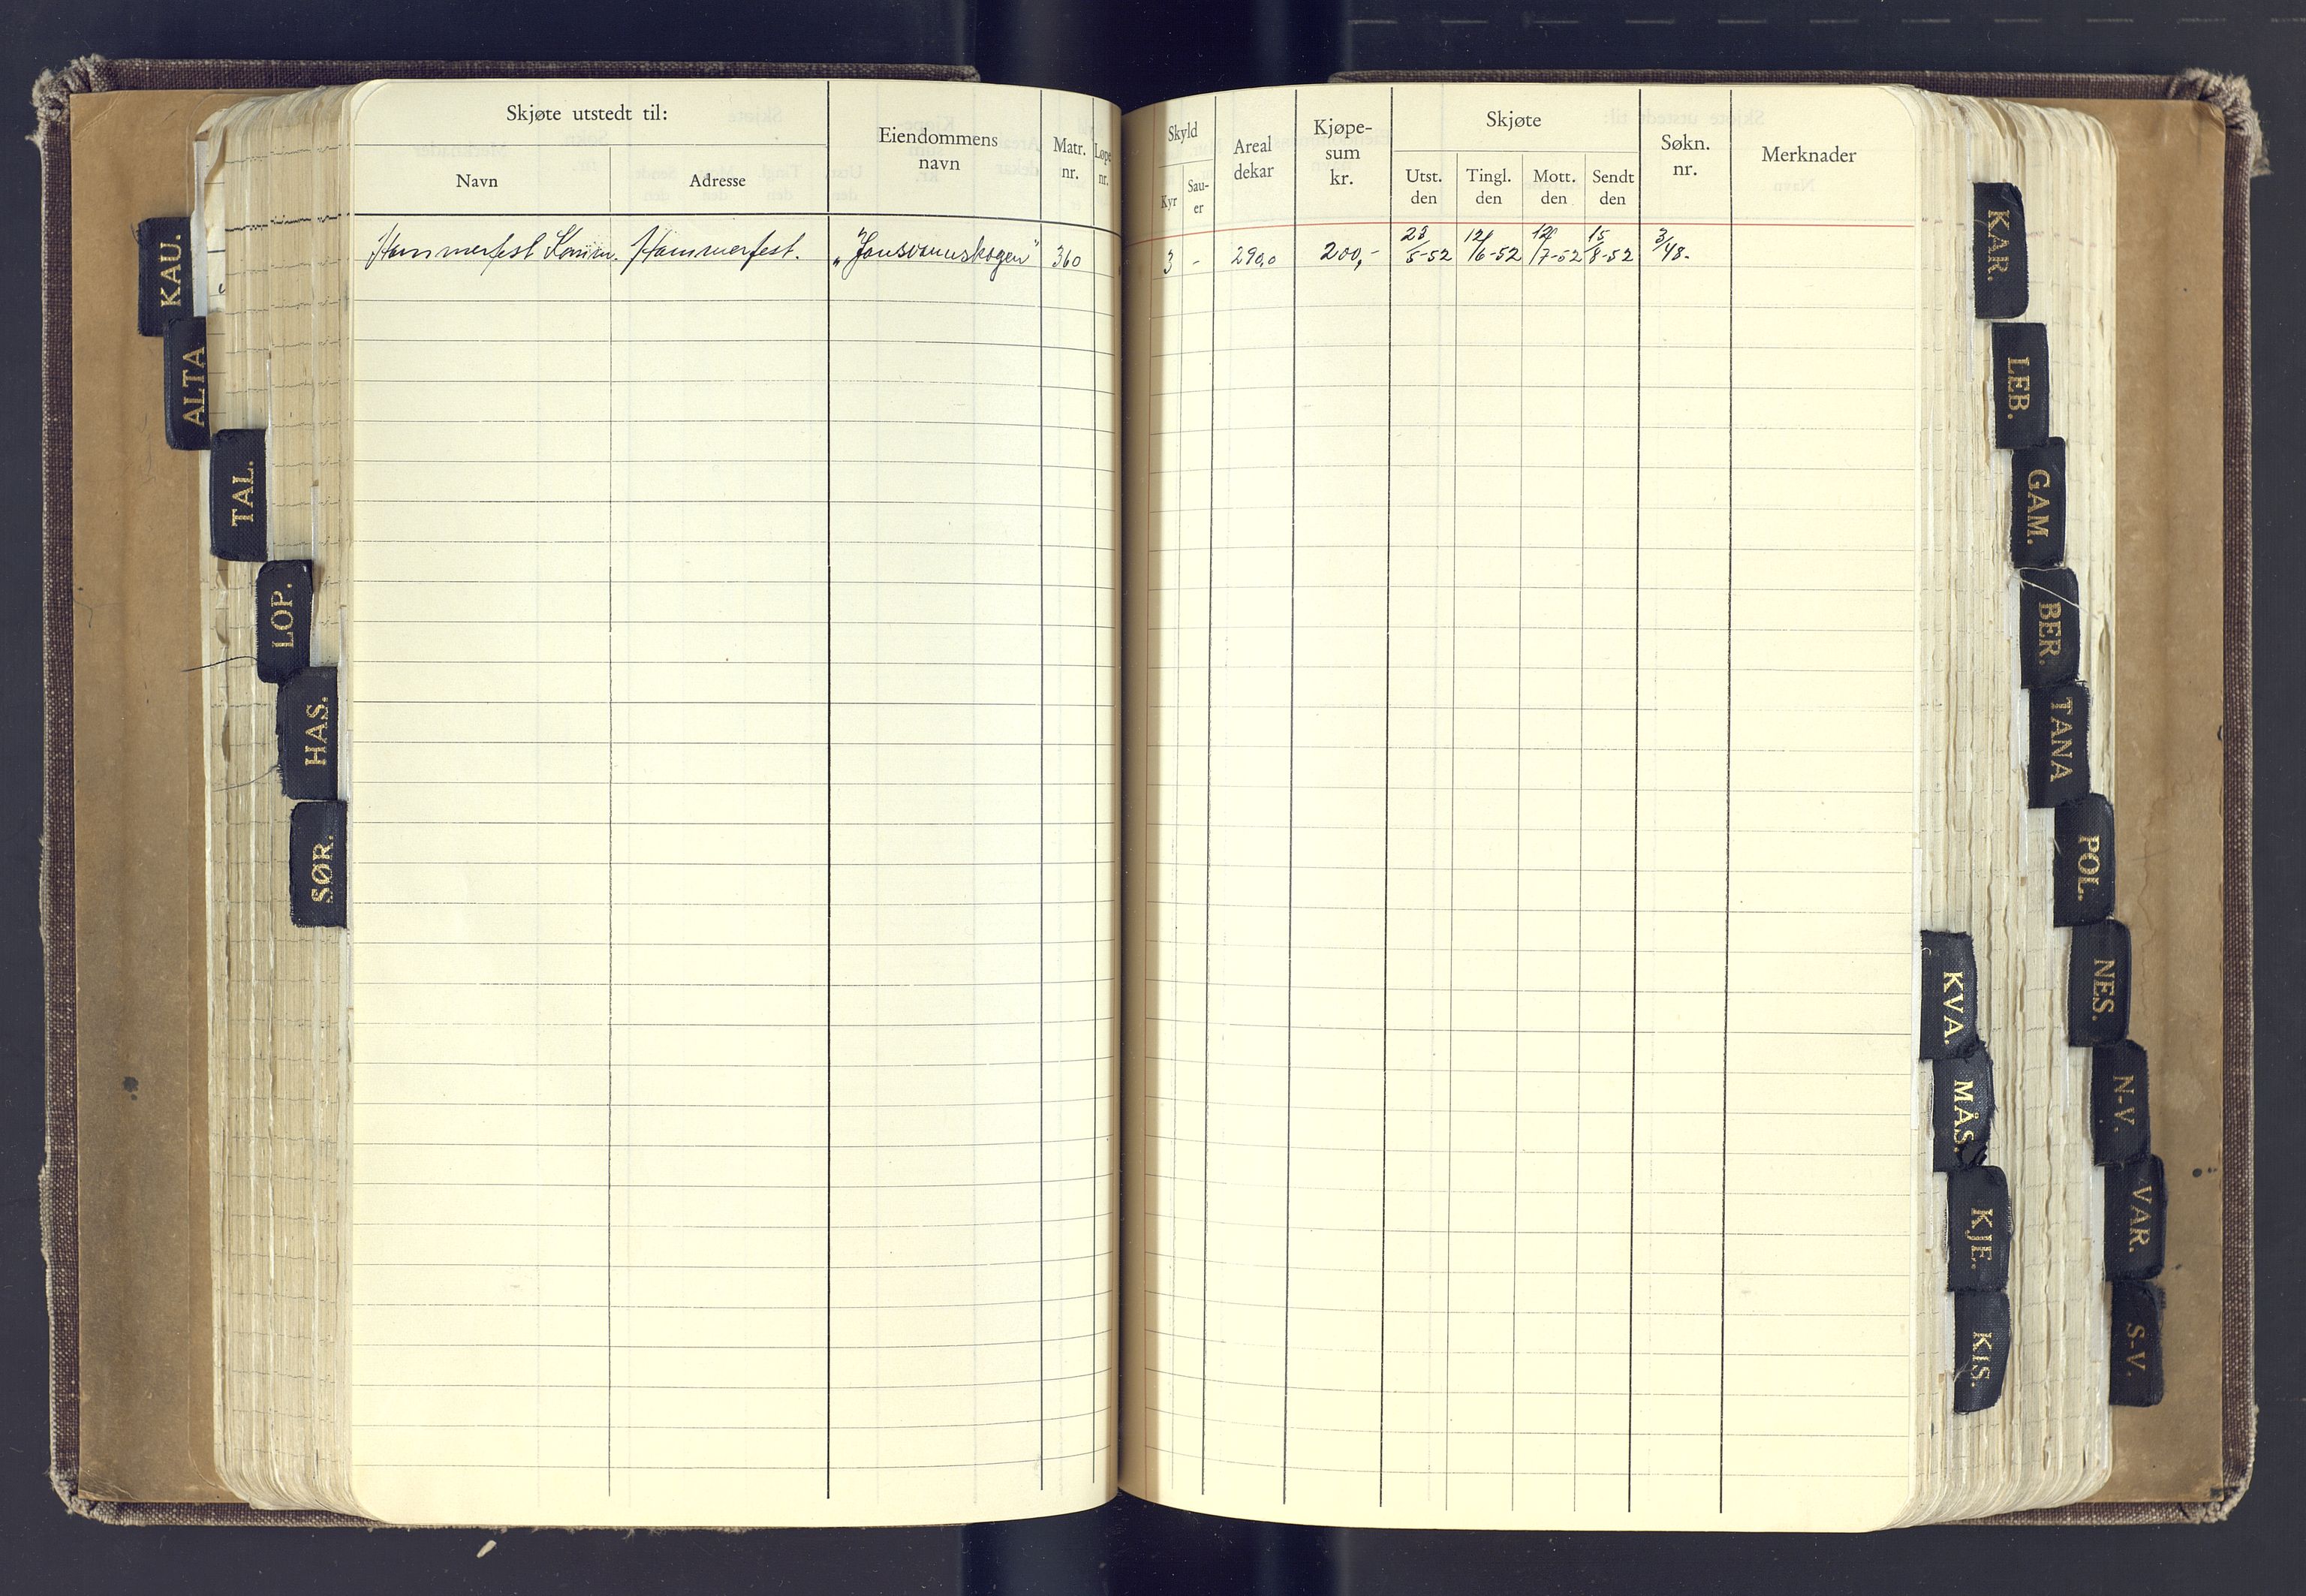 Skjøte utstedt til:
Navn
Adresse
Eiendommens
navn
Matr.
nr.
Løpe
nr.
Skyld
Kyr
Sau-
er
Areal
dekar
Kjøpe-
sum
kr.
Skjøte
Utst.
den
Tingl.
den
Mott.
den
Sendt
den
Søkn.
nr.
Merknader
Hammerfest Komm. Hammerfest. "Jansvannskogen" 360 3 - 290,0 200,- 23/5-52 12/6-52 12/7-52 15/8-52 3/48.
KAU.
ALTA
TAL.
LOP.
HAS.
SØR.
KAR.
LEB.
GAM.
BER.
TANA
POL.
NES.
N-V.
VAR.
S-V.
KVA.
MÅS.
KJE.
KIS.